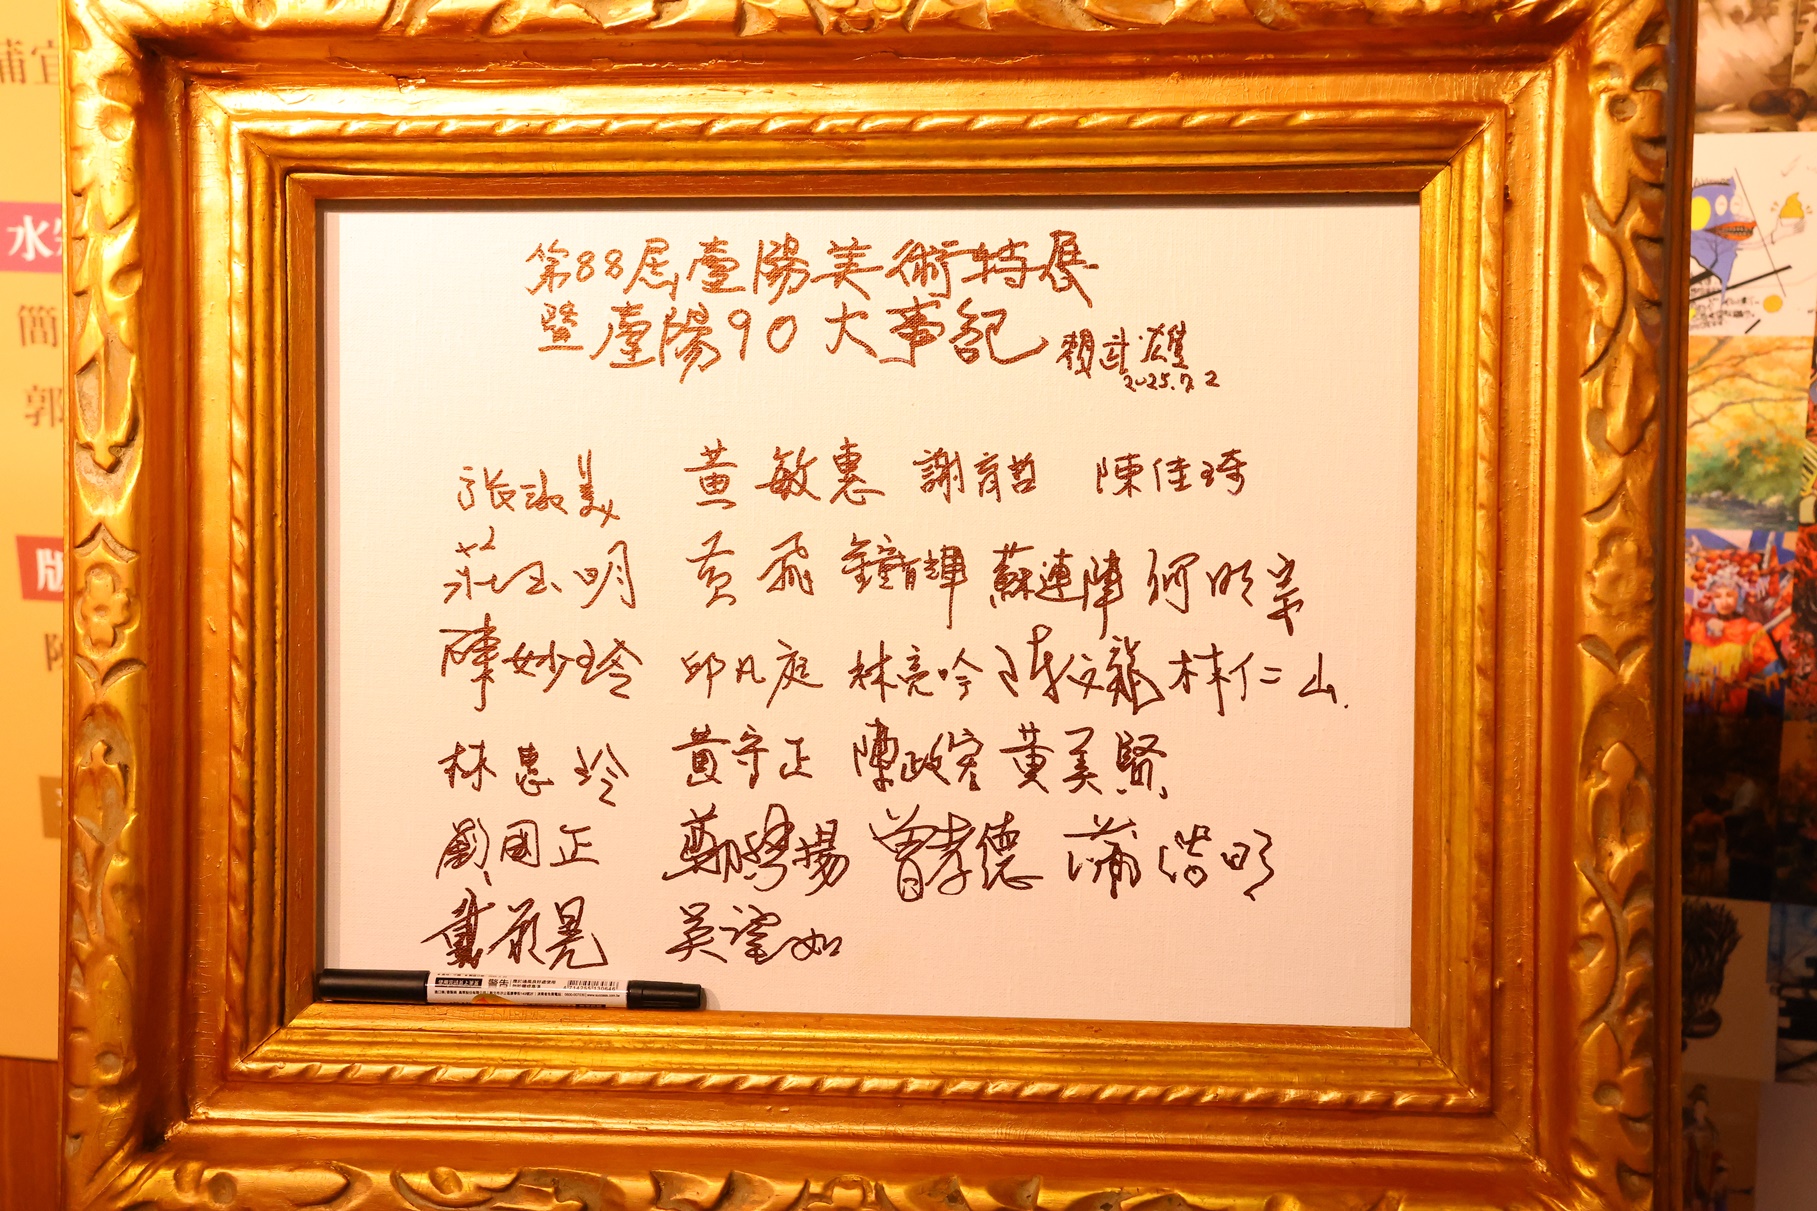 第88屆臺陽美術特展
暨臺陽90大事記 賴武雄
2025.7.2
張淑美 黃敏惠 謝育哲 陳佳琦
莊玉明 黃飛 鐘有輝 蘇連陣 何明宗
陳妙玲 邱凡庭 林亮吟 陳文龍 林仁山
林惠玲 黃守正 陳政宏 黃美賢
劉國正 曾孝德 蒲浩明
吳
警告
水
簡
郭
版